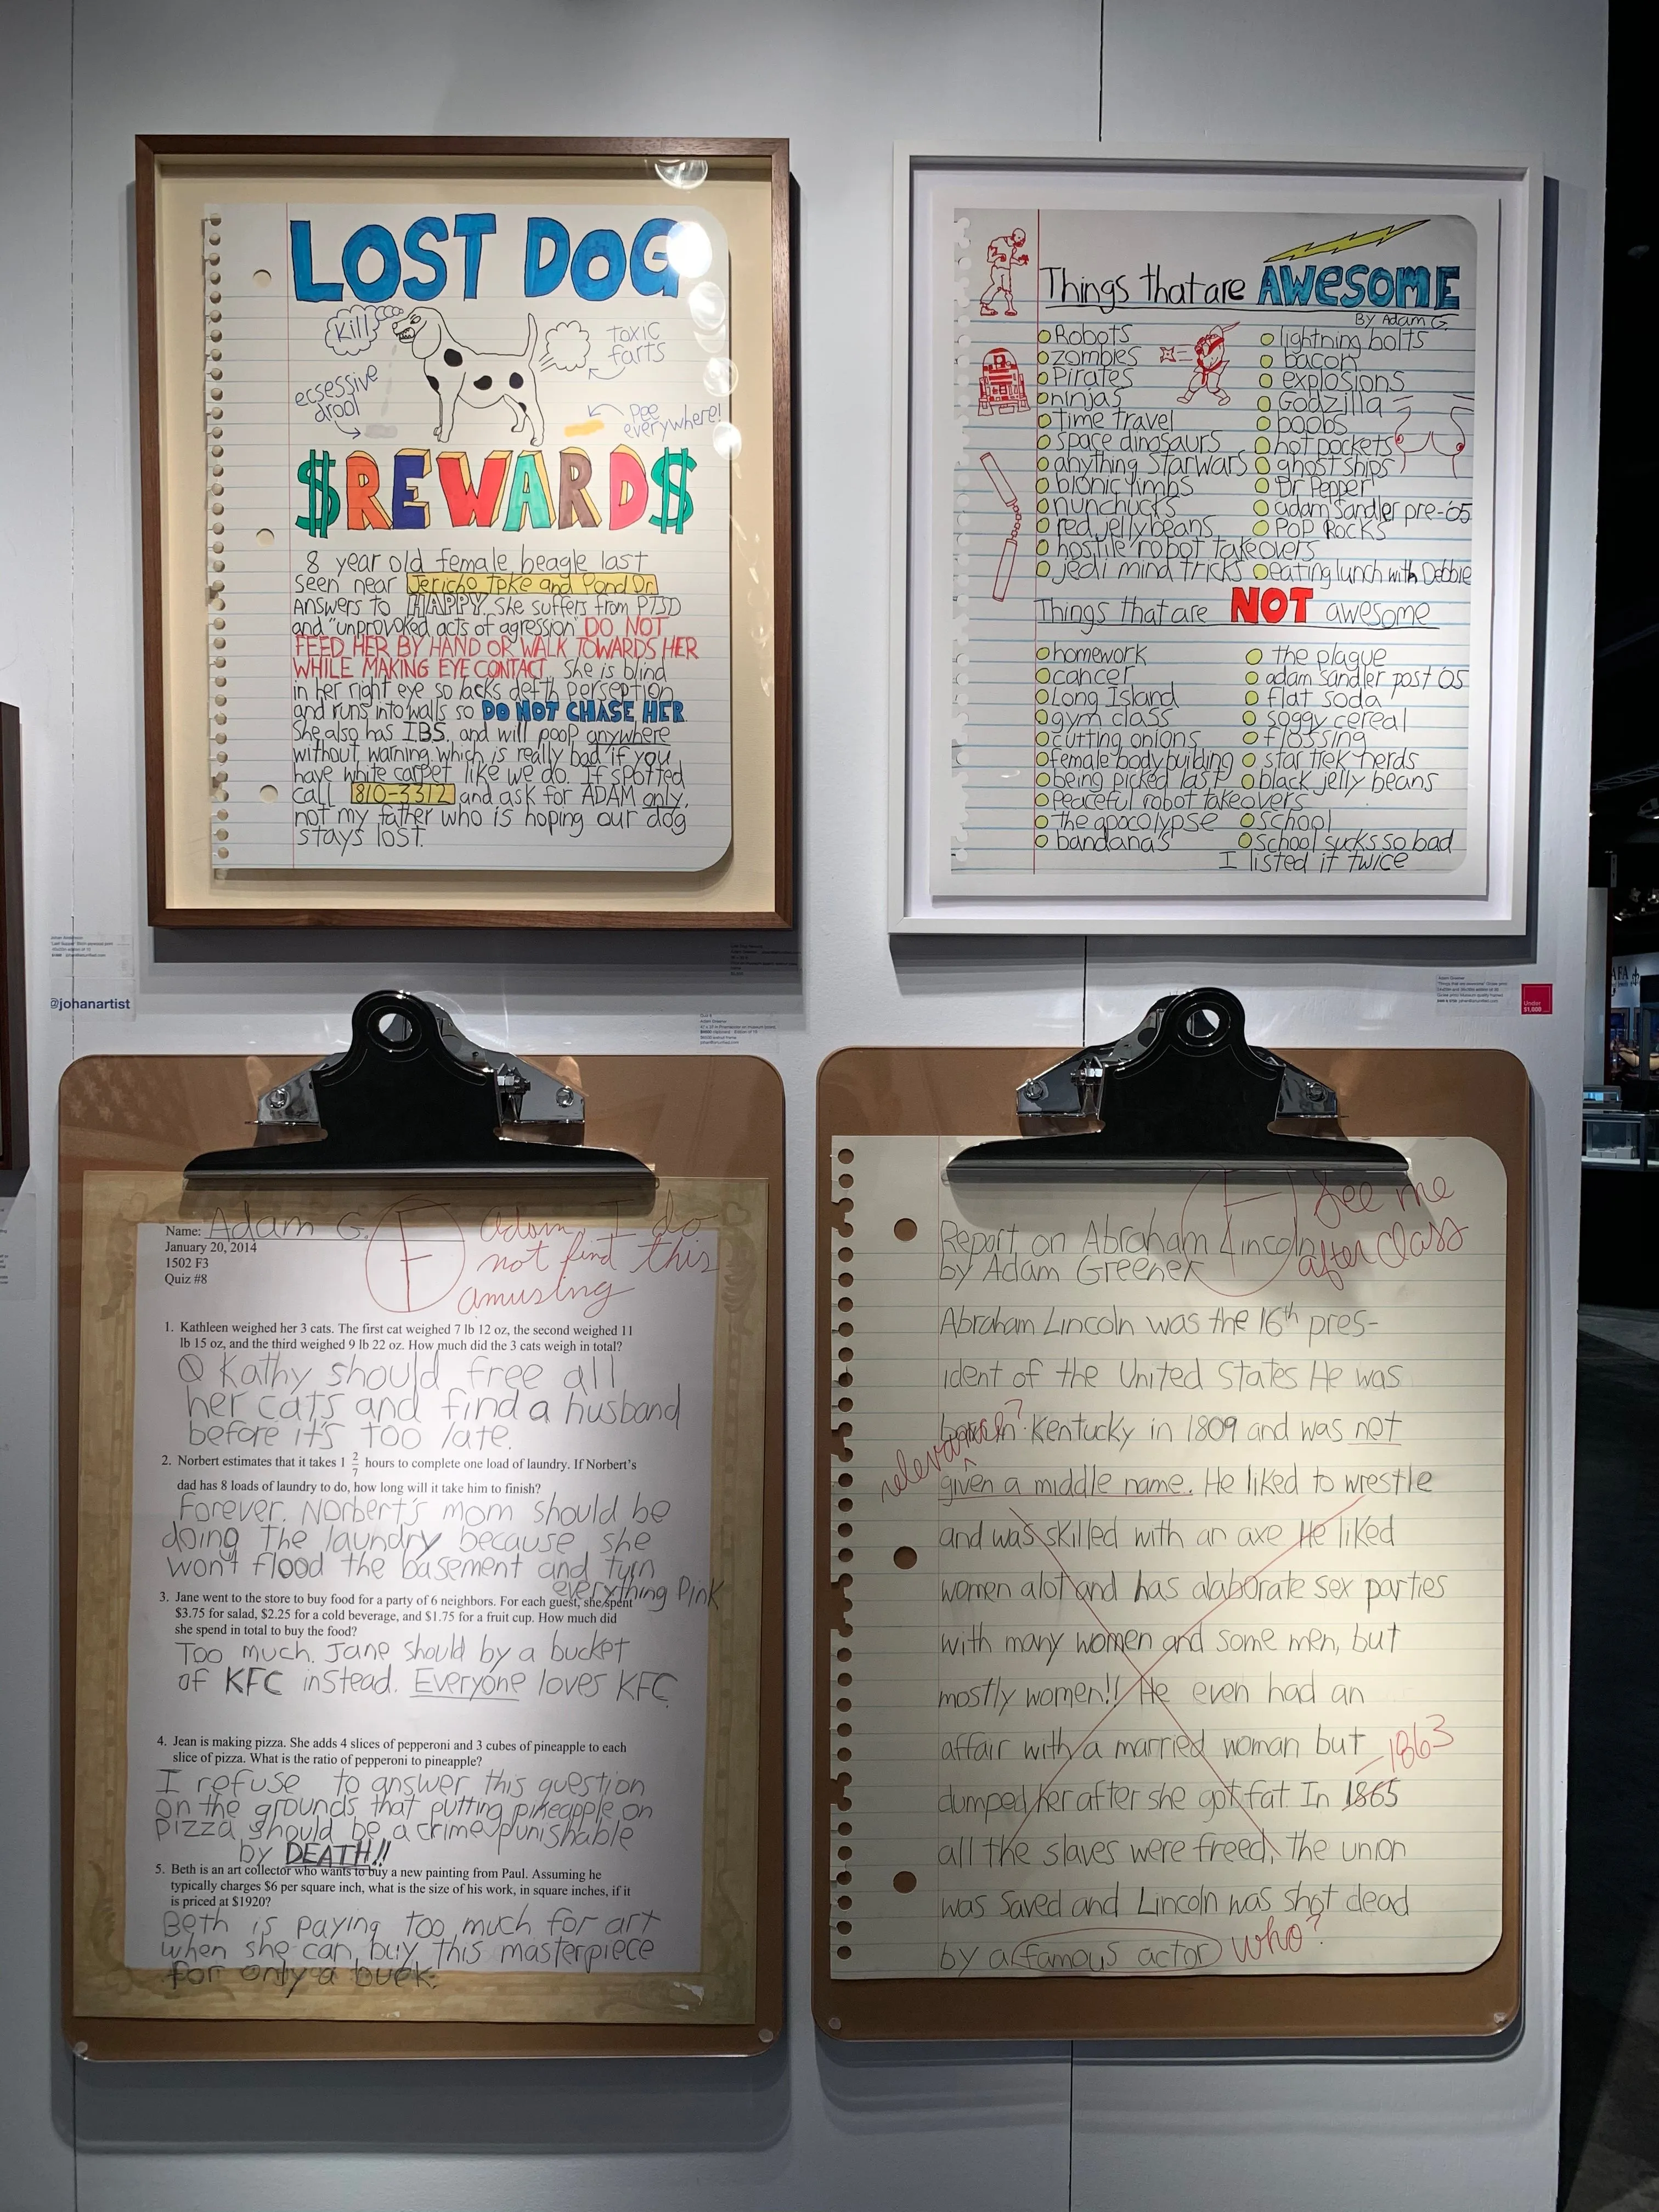 LOST DOG
Kill
toxic
farts
ecsessive
drool
Pee
everywhere!
$REWARD$
8 year old female beagle last
seen near Jericho Tpke and Pond Dr.
Answers to HAPPY. She suffers from PTSD
and "unprovoked acts of agression" DO NOT
FEED HER BY HAND OR WALK TOWARDS HER
WHILE MAKING EYE CONTACT. She is blind
in her right eye so lacks defth perseption
and runs into walls so DO NOT CHASE HER.
She also has IBS. and will poop anywhere
without warning which is really bad if you
have white carpet like we do. If spotted
call 810-3312 and ask for ADAM only,
not my father who is hoping our dog
stays lost.
Things that are AWESOME
By Adam G.
Robots
zombies
Pirates
ninjas
Time travel
space dinosaurs
anything Starwars
bionic limbs
nunchucks
red jelly beans
hostile robot takeovers
jedi mind tricks
lightning bolts
bacon
explosions
Godzilla
boobs
hot pockets
ghost ships
Dr Pepper
adam Sandler pre-'05
POP ROCKS
eating lunch with Debbie
Things that are NOT awesome
homework
cancer
Long Island
gym class
cutting onions
female bodybuilding
being picked last
peaceful robot takeovers
the apocolypse
bandana's
the plague
adam sandler post '05
flat soda
soggy cereal
flossing
star trek nerds
black jelly beans
school
school sucks so bad
I listed it twice
@johanartist
Under
$1,000
Name: Adam G.
January 20, 2014
1502 F3
Quiz #8
F
Adam, I do
not find this
amusing
1. Kathleen weighed her 3 cats. The first cat weighed 7 lb 12 oz, the second weighed 11
lb 15 oz, and the third weighed 9 lb 22 oz. How much did the 3 cats weigh in total?
Kathy should free all
her cats and find a husband
before it's too late.
2. Norbert estimates that it takes 1 2/7 hours to complete one load of laundry. If Norbert's
dad has 8 loads of laundry to do, how long will it take him to finish?
Forever. Norbert's mom should be
doing the laundry because she
won't flood the basement and turn
everything Pink
3. Jane went to the store to buy food for a party of 6 neighbors. For each guest, she spent
$3.75 for salad, $2.25 for a cold beverage, and $1.75 for a fruit cup. How much did
she spend in total to buy the food?
Too much. Jane should by a bucket
of KFC instead. Everyone loves KFC.
4. Jean is making pizza. She adds 4 slices of pepperoni and 3 cubes of pineapple to each
slice of pizza. What is the ratio of pepperoni to pineapple?
I refuse to answer this question
on the grounds that putting pineapple on
pizza should be a crime punishable
by DEATH!!
5. Beth is an art collector who wants to buy a new painting from Paul. Assuming he
typically charges $6 per square inch, what is the size of his work, in square inches, if it
is priced at $1920?
Beth is paying too much for art
when she can buy this masterpiece
for only a buck.
F
See me
after class
Report on Abraham Lincoln
by Adam Greener
Abraham Lincoln was the 16th pres-
ident of the United States He was
born in Kentucky in 1809 and was not
relevance?
given a middle name. He liked to wrestle
and was skilled with an axe He liked
women alot and has elaborate sex parties
with many women and some men, but
mostly women!! He even had an
affair with a married woman but
-1863
dumped her after she got fat. In 1865
all the slaves were freed, the union
was saved and Lincoln was shot dead
by a famous actor who?